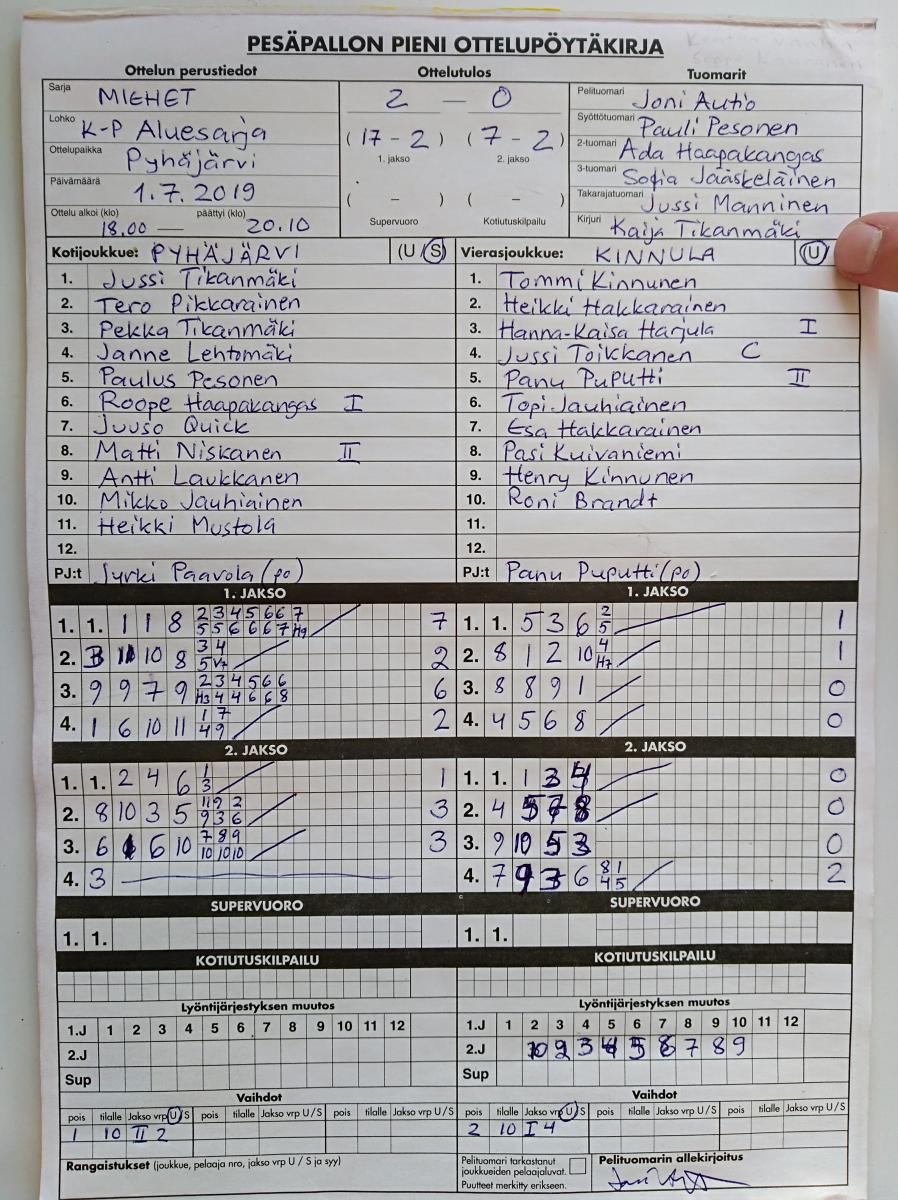 PESÄPALLON PIENI OTTELUPÖYTÄKIRJA
Ottelun perustiedot
Sarja MIEHET
Lohko K-P Aluesarja
Ottelupaikka Pyhäjärvi
Päivämäärä 1.7.2019
Ottelu alkoi (klo) päättyi (klo)
18.00 — 20.10
Ottelutulos
2 — 0
(17 - 2) (7 - 2)
1. jakso 2. jakso
( - ) ( - )
Supervuoro Kotiutuskilpailu
Tuomarit
Pelituomari Joni Autio
Syöttötuomari Pauli Pesonen
2-tuomari Ada Haapakangas
3-tuomari Sofia Jääskeläinen
Takarajatuomari Jussi Manninen
Kirjuri Kaija Tikanmäki
Kotijoukkue: PYHÄJÄRVI (U S)
1. Jussi Tikanmäki
2. Tero Pikkarainen
3. Pekka Tikanmäki
4. Janne Lehtomäki
5. Paulus Pesonen
6. Roope Haapakangas I
7. Juuso Quick
8. Matti Niskanen II
9. Antti Laukkanen
10. Mikko Jauhiainen
11. Heikki Mustola
12.
PJ:t Jyrki Paavola (po)
Vierasjoukkue: KINNULA (U)
1. Tommi Kinnunen
2. Heikki Hakkarainen
3. Hanna-Kaisa Harjula I
4. Jussi Toikkanen C
5. Panu Puputti II
6. Topi Jauhiainen
7. Esa Hakkarainen
8. Pasi Kuivaniemi
9. Henry Kinnunen
10. Roni Brandt
11.
12.
PJ:t Panu Puputti (po)
1. JAKSO
1. 1. 1 1 8 2 3 4 5 6 6 7 7
5 5 6 6 6 7 H9
2. 10 8 3 4 2
5 V7
3. 9 9 7 9 2 3 4 5 6 6 6
H3 4 4 6 6 8
4. 1 6 10 11 1 7 2
4 9
2. JAKSO
1. 1. 2 4 6 1 1
3
2. 8 10 3 5 11 9 2 3
9 3 6
3. 6 6 10 7 8 9 3
10 10 10
4. 3
SUPERVUORO
1. 1.
KOTIUTUSKILPAILU
1. JAKSO
1. 1. 5 3 6 2 1
5
2. 8 1 2 10 4 1
H7
3. 8 8 9 1 0
4. 4 5 6 8 0
2. JAKSO
1. 1. 1 3 4 0
2. 4 5 8 0
3. 9 10 5 3 0
4. 7 9 3 6 8 1 2
4 5
SUPERVUORO
1. 1.
KOTIUTUSKILPAILU
Lyöntijärjestyksen muutos
1.J 1 2 3 4 5 6 7 8 9 10 11 12
2.J
Sup
Vaihdot
pois tilalle Jakso vrp U/S pois tilalle Jakso vrp U/S pois tilalle Jakso vrp U/S
1 10 II 2
Lyöntijärjestyksen muutos
1.J 1 2 3 4 5 6 7 8 9 10 11 12
2.J 10 2 3 4 5 6 7 8 9
Sup
Vaihdot
pois tilalle Jakso vrp U/S pois tilalle Jakso vrp U/S pois tilalle Jakso vrp U/S
2 10 I 4
Rangaistukset (joukkue, pelaaja nro, jakso vrp U / S ja syy)
Pelituomari tarkastanut
joukkueiden pelaajaluvat.
Puutteet merkitty erikseen.
Pelituomarin allekirjoitus